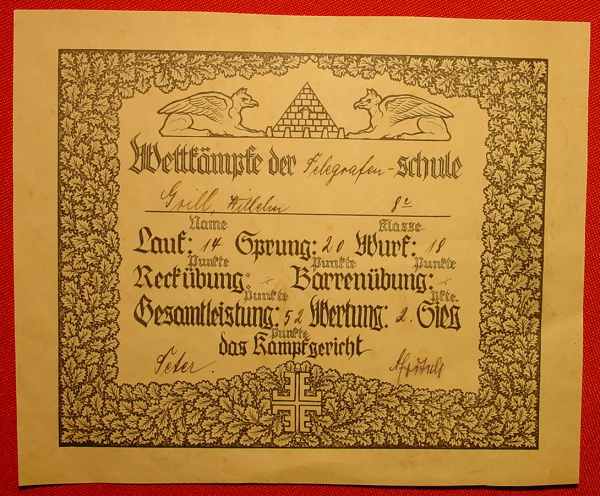 Wettkämpfe der Telegrafen-schule
Grill Wilhelm 8c
Name Klasse
Lauf: 14 Sprung: 20 Wurf: 18
Punkte Punkte Punkte
Reckübung: - Barrenübung: -
Punkte Pkte.
Gesamtleistung: 52 Wertung: 2. Sieg
Punkte
das Kampfgericht
Peter.